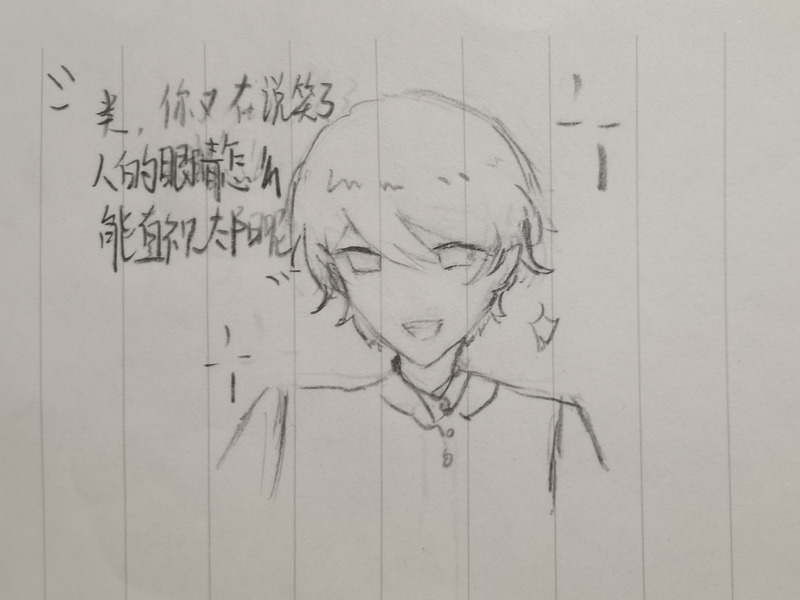 类，你又在说笑了
人的眼睛怎么
能直视太阳呢